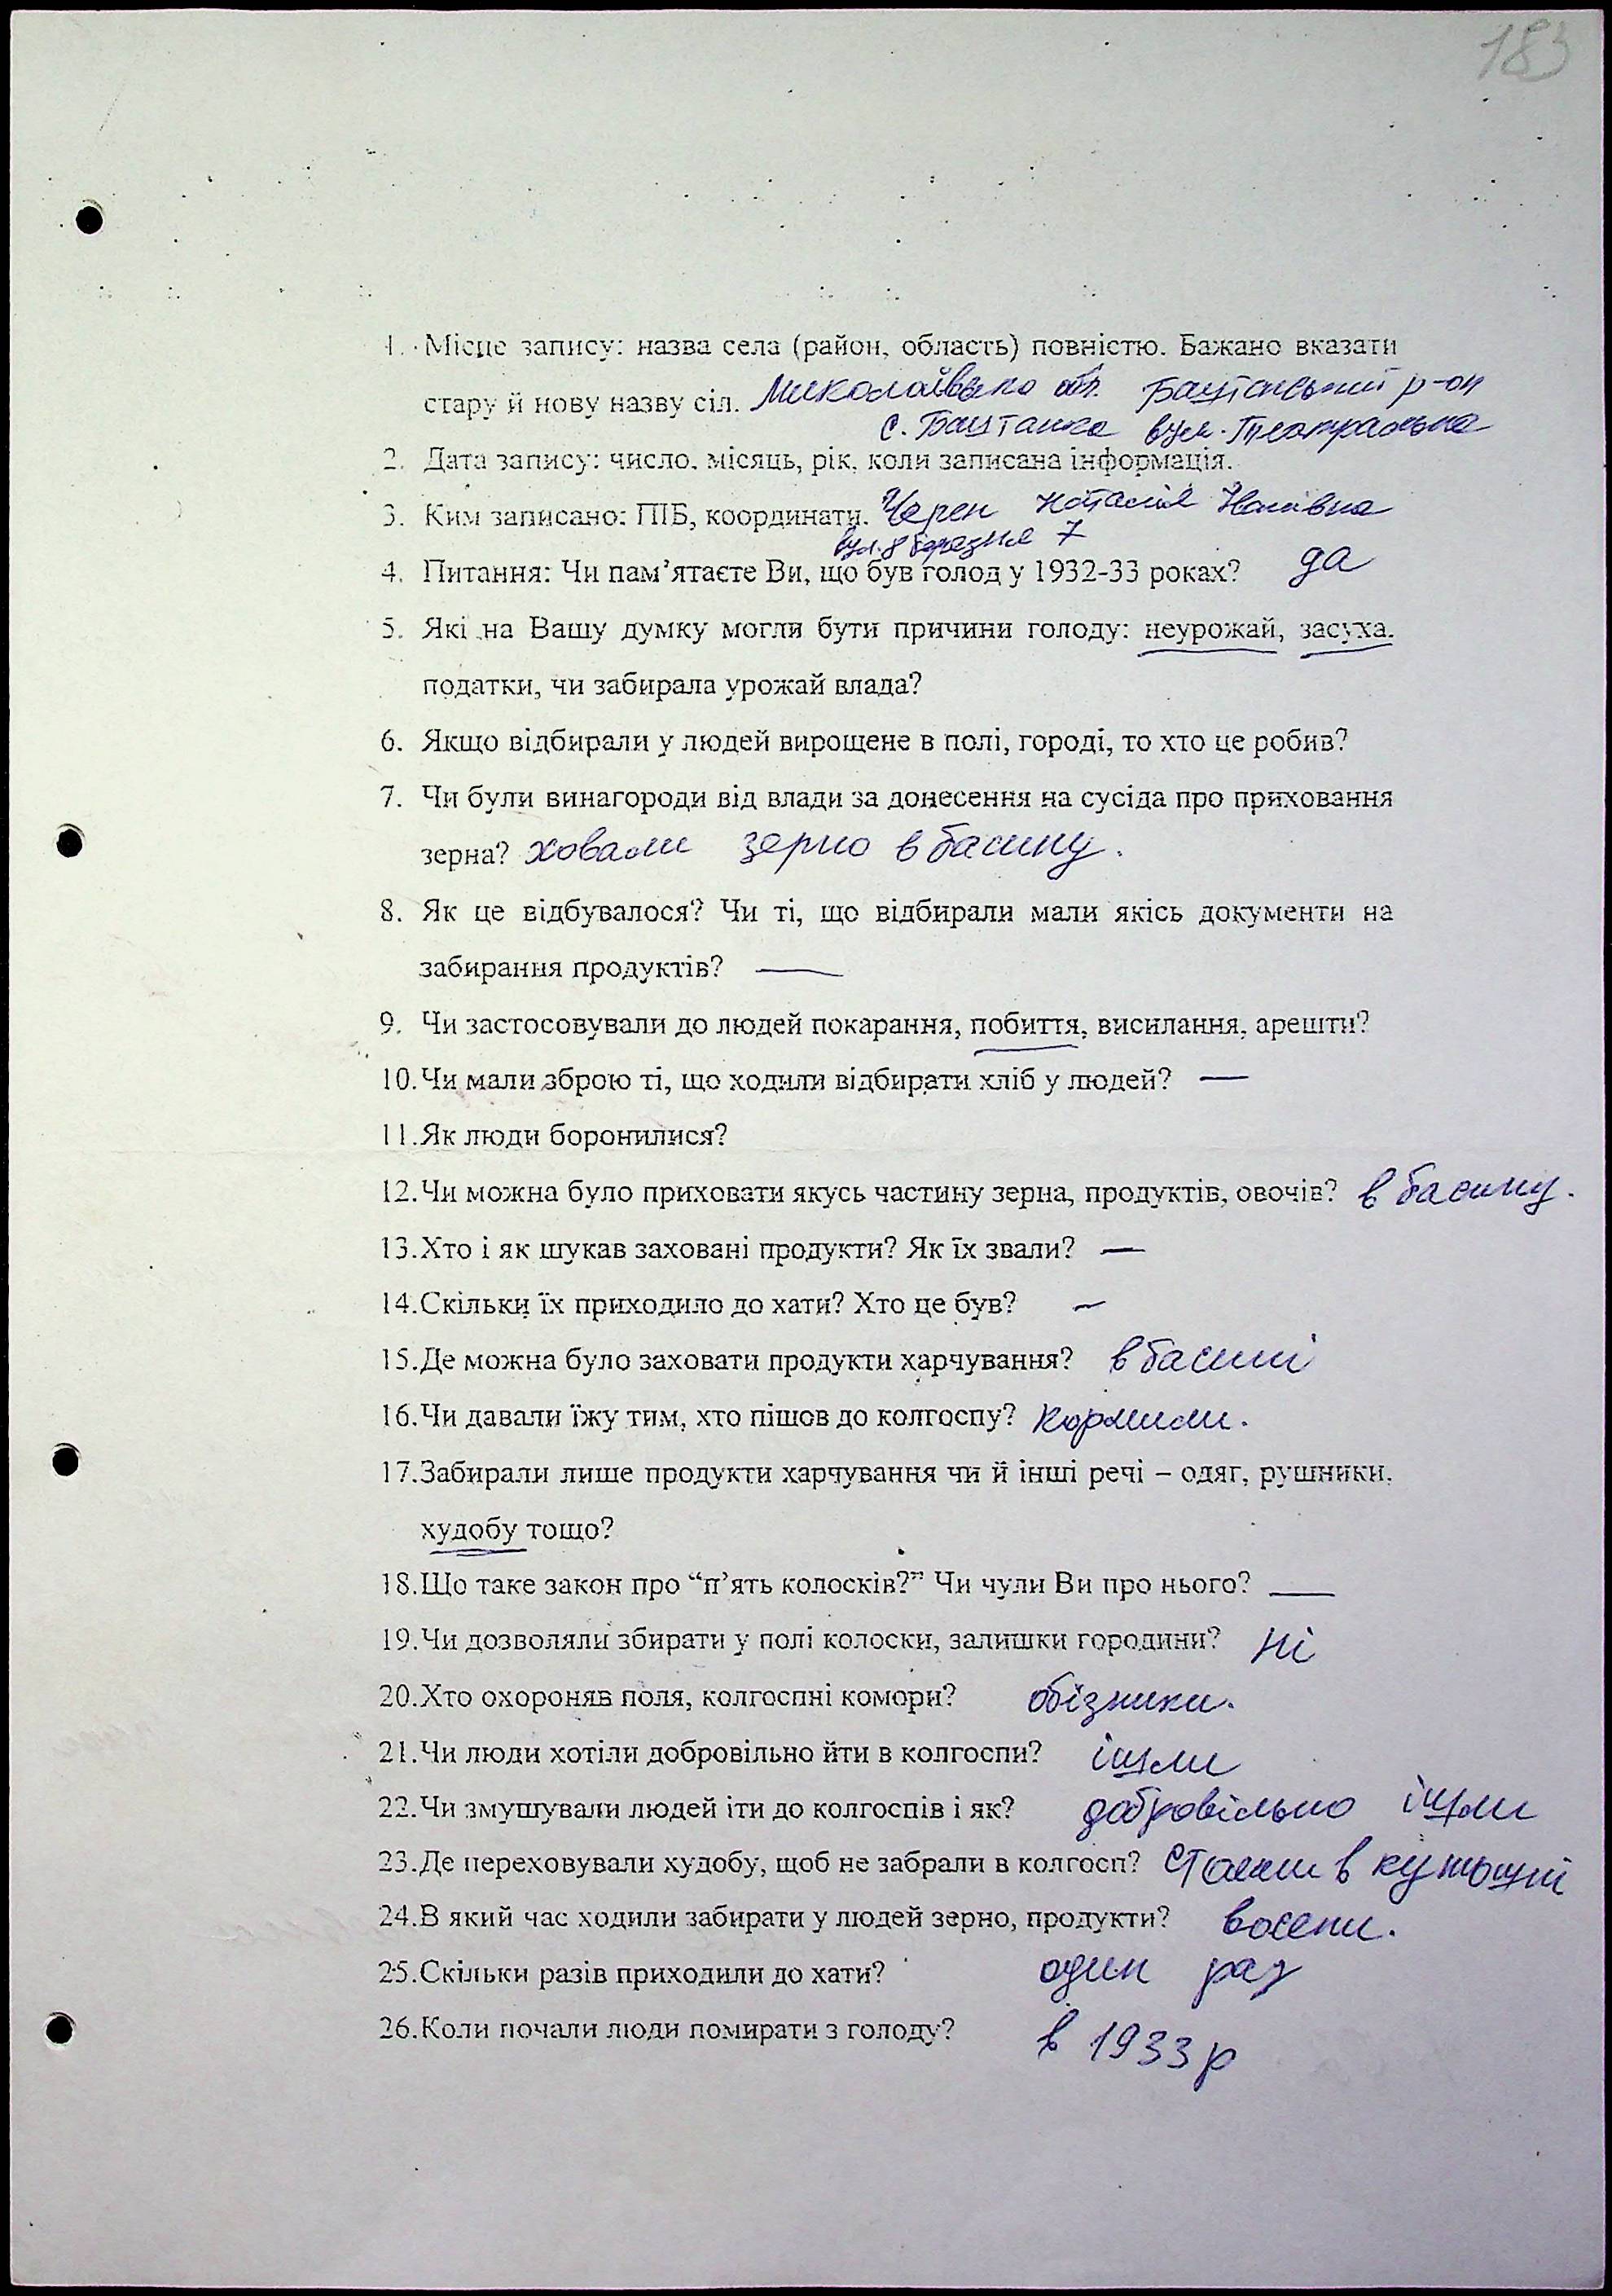 183
1. Місце запису: назва села (район, область) повністю. Бажано вказати
стару й нову назву сіл. Миколаївська обл. Баштанський р-он
с. Баштанка вул. Театральна
2. Дата запису: число, місяць, рік, коли записана інформація.
3. Ким записано: ПІБ, координати. Черен Наталія Іванівна
вул. 8 березня 7
4. Питання: Чи пам’ятаєте Ви, що був голод у 1932-33 роках? да
5. Які на Вашу думку могли бути причини голоду: неурожай, засуха,
податки, чи забирала урожай влада?
6. Якщо відбирали у людей вирощене в полі, городі, то хто це робив?
7. Чи були винагороди від влади за донесення на сусіда про приховання
зерна? ховали зерно в басину.
8. Як це відбувалося? Чи ті, що відбирали мали якісь документи на
забирання продуктів? —
9. Чи застосовували до людей покарання, побиття, висилання, арешти?
10. Чи мали зброю ті, що ходили відбирати хліб у людей? —
11. Як люди боронилися?
12. Чи можна було приховати якусь частину зерна, продуктів, овочів? в басину.
13. Хто і як шукав заховані продукти? Як їх звали? —
14. Скільки їх приходило до хати? Хто це був? —
15. Де можна було заховати продукти харчування? в басині
16. Чи давали їжу тим, хто пішов до колгоспу? кормили.
17. Забирали лише продукти харчування чи й інші речі – одяг, рушники,
худобу тощо?
18. Що таке закон про “п’ять колосків?” Чи чули Ви про нього? —
19. Чи дозволяли збирати у полі колоски, залишки городини? Ні
20. Хто охороняв поля, колгоспні комори? обізники.
21. Чи люди хотіли добровільно йти в колгоспи? ішли
22. Чи змушували людей іти до колгоспів і як? добровільно ішли
23. Де переховували худобу, щоб не забрали в колгосп? в
24. В який час ходили забирати у людей зерно, продукти? восени.
25. Скільки разів приходили до хати? один раз
26. Коли почали люди помирати з голоду? в 1933 р